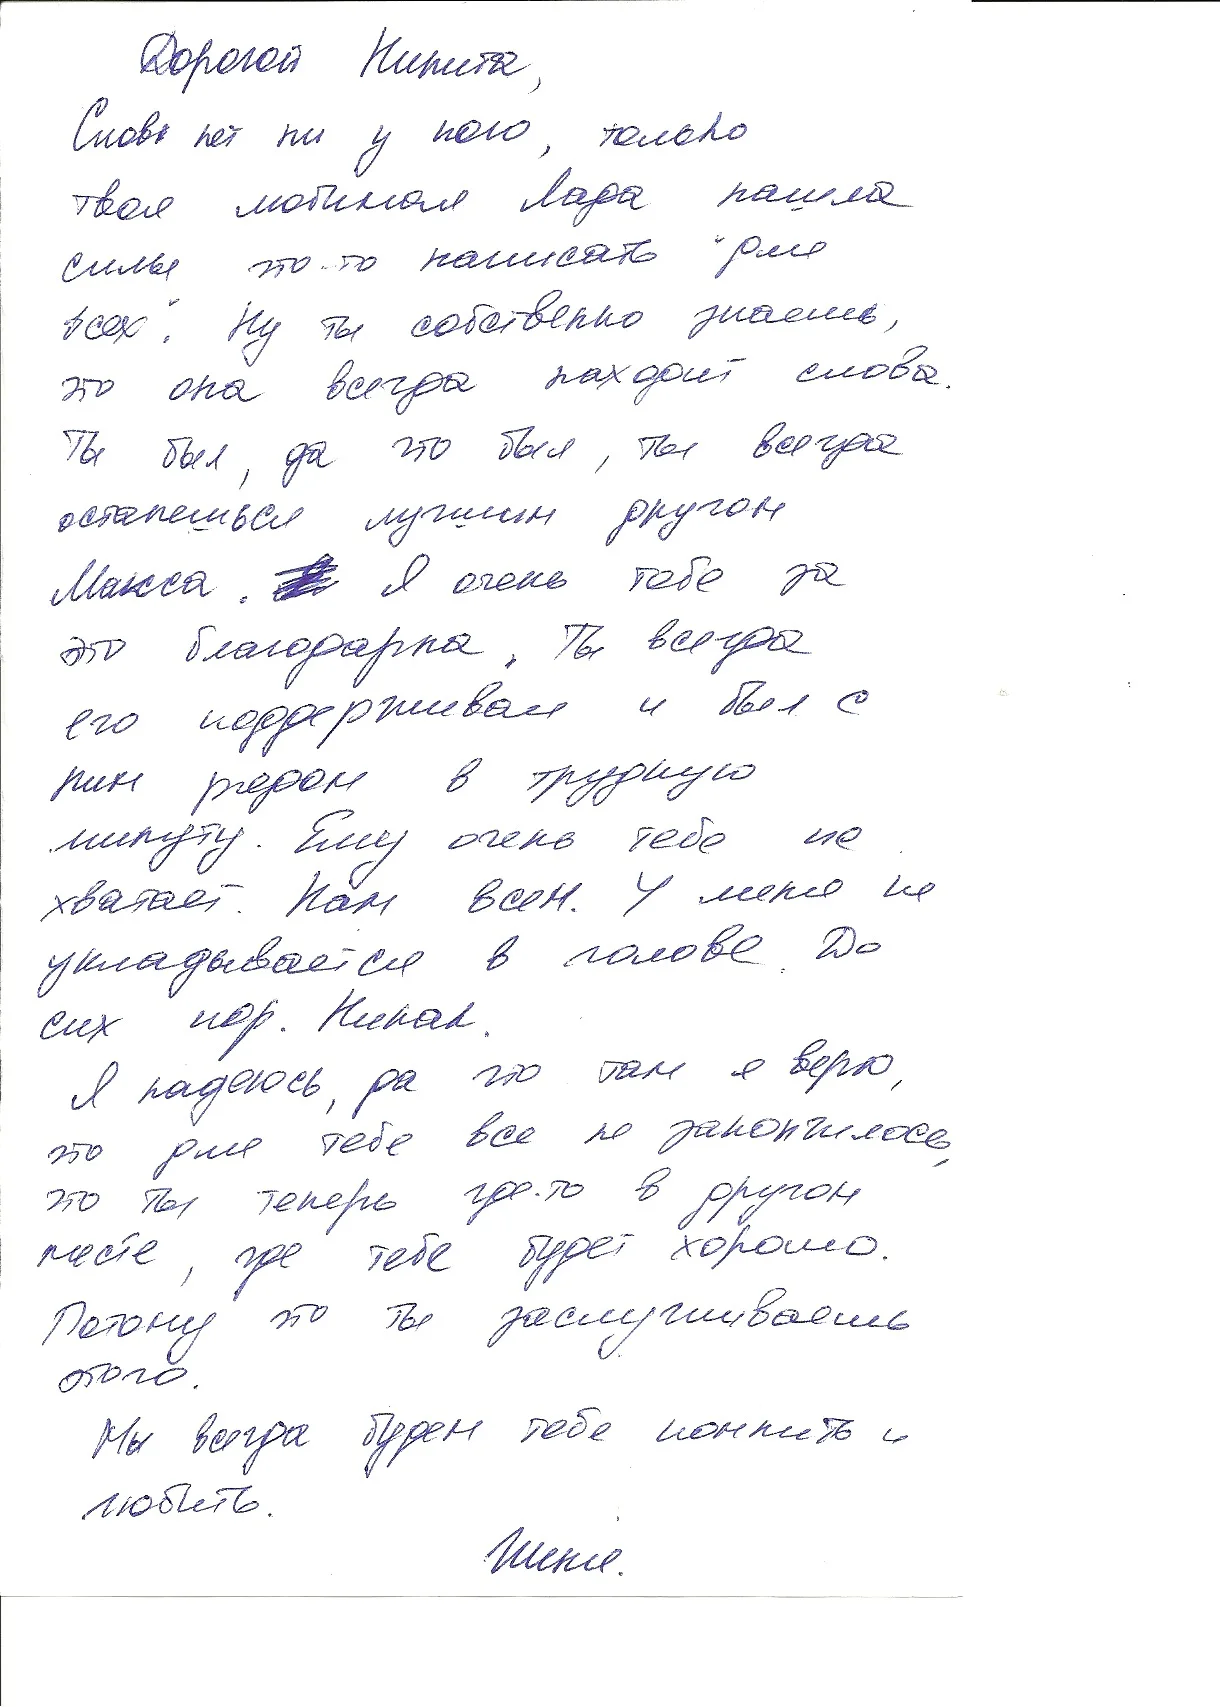 Дорогой Никита,
Слов нет ни у кого, только
твоя любимая Лада нашла
силы что-то написать "для
всех". Ну ты собственно знаешь,
что она всегда находит слова.
Ты был, да что был, ты всегда
останешься лучшим другом
Макса. Я очень тебе за
это благодарна. Ты всегда
его поддерживал и был с
ним рядом в трудную
минуту. Ему очень тебе не
хватает. Нам всем. У меня не
укладывается в голове. До
сих пор. Никак.
Я надеюсь, да что там я верю,
что для тебе все не закончилось,
что ты теперь где-то в другом
месте, где тебе будет хорошо.
Потому что ты заслуживаешь
этого.
Мы всегда будем тебе помнить и
любить.
Женя.